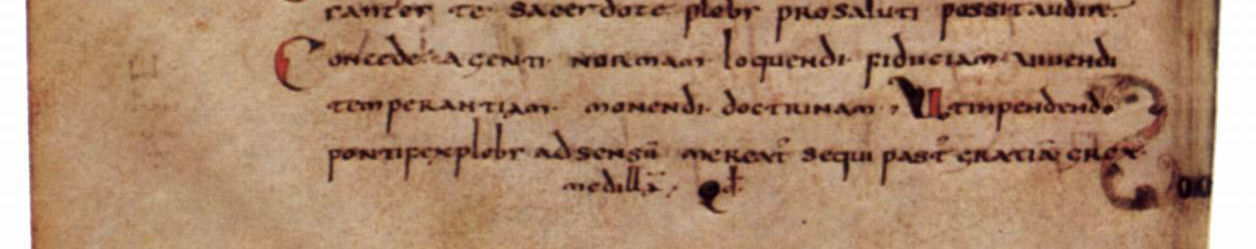 cantes te sacerdote plebs pro saluti possit audire.
Concede agenti normam loquendi fiduciam uiuendi
temperantiam monendi doctrinam, Ut inpendendo
pontifex plebs ad sensū mereat sequi past gratiā grex
medellā,